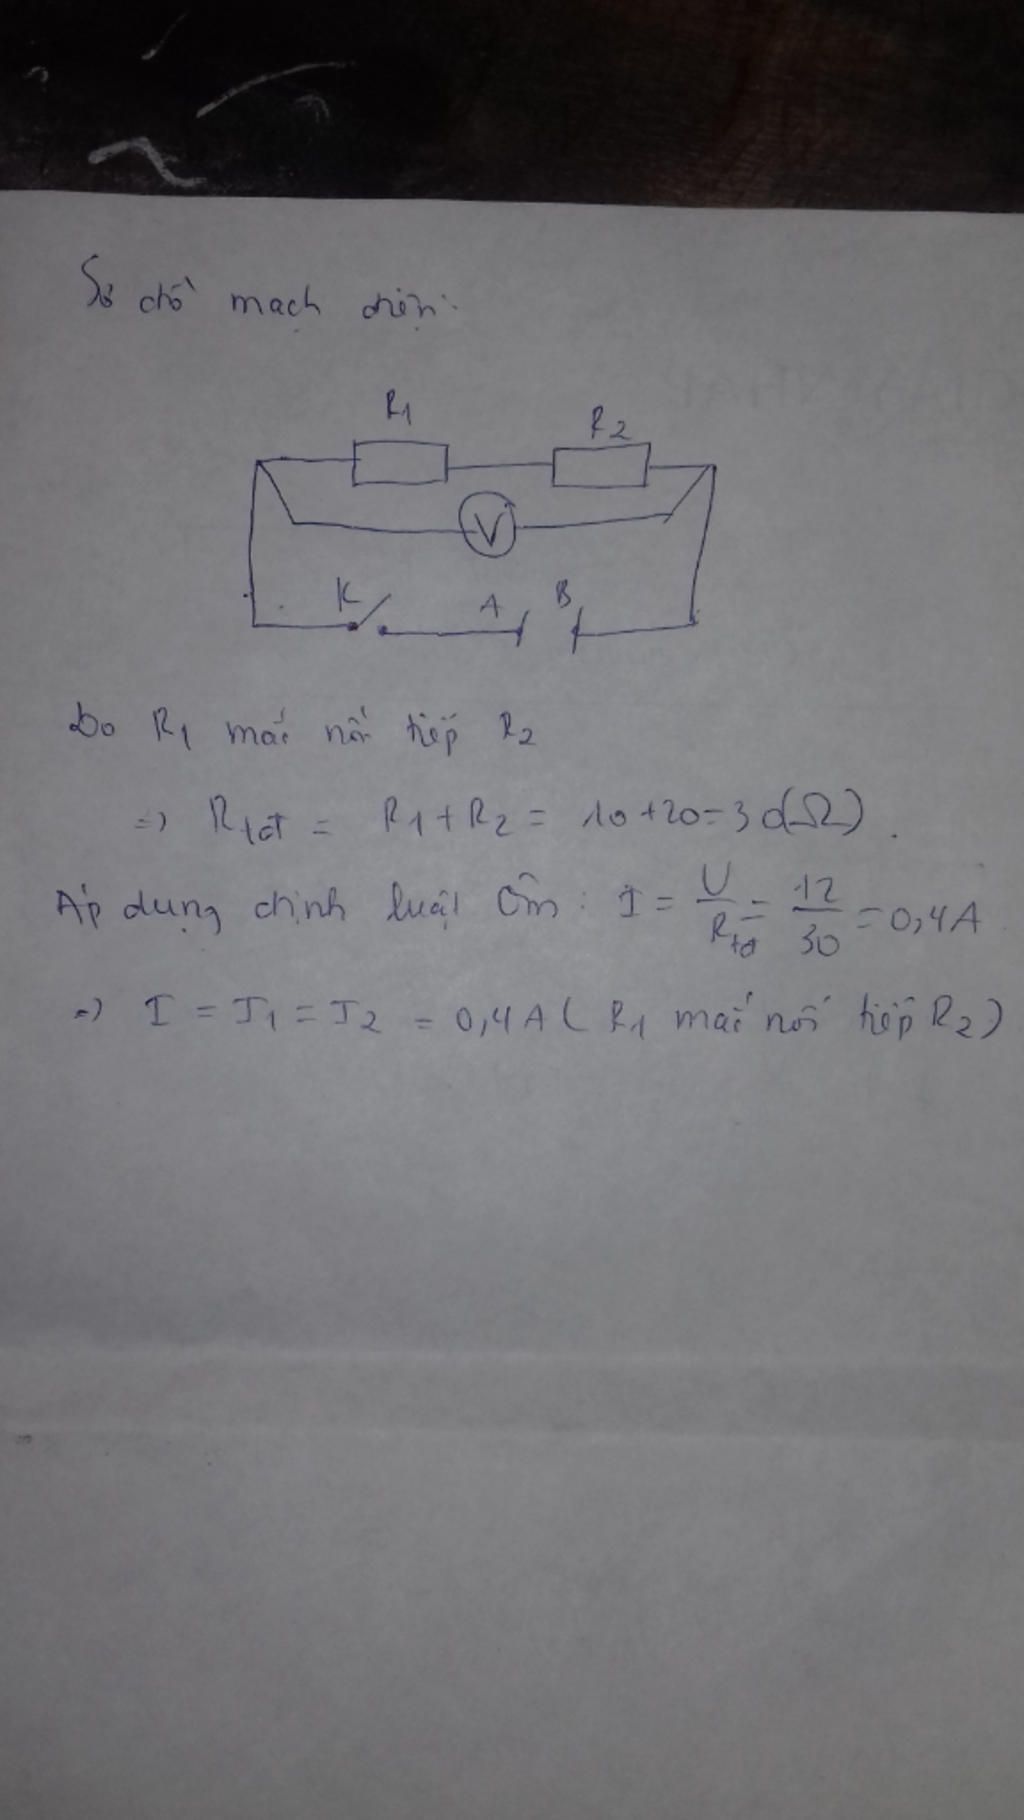 Sơ đồ mạch điện:
R1
R2
V
K
A
B
Do R1 mắc nối tiếp R2
=> Rtđ = R1 + R2 = 10 + 20 = 30(Ω).
Áp dụng định luật Ôm: I = U/Rtđ = 12/30 = 0,4A
=> I = I1 = I2 = 0,4A ( R1 mắc nối tiếp R2)